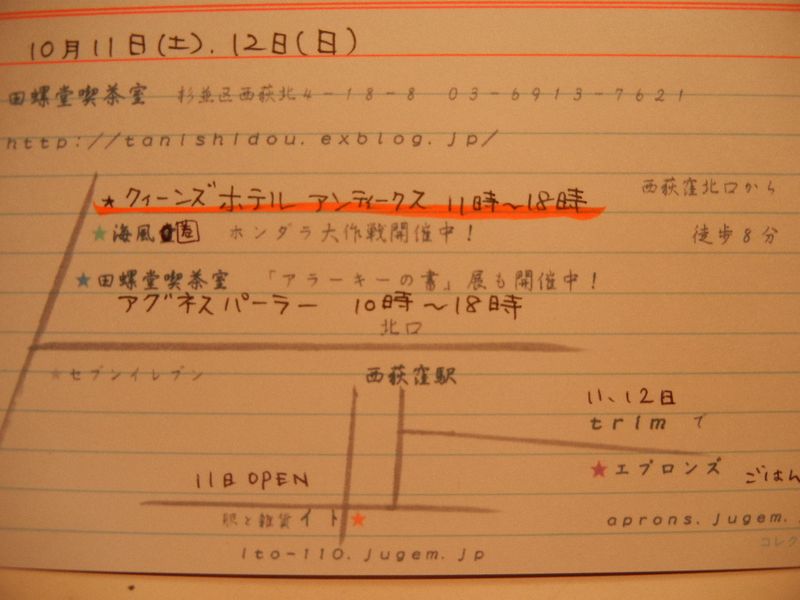 10月11日(土).12日(日)
田螺堂喫茶室 杉並区西荻北4-18-8 03-6913-7621
http://tanishidou.exblog.jp/
★クィーンズホテル アンティークス 11時～18時
西荻窪北口から
★海風 ホンダラ大作戦開催中!
徒歩8分
★田螺堂喫茶室 「アラーキーの書」展も開催中!
アグネスパーラー 10時～18時
北口
★セブンイレブン
西荻窪駅
11、12日
trimで
★エプロンズ ごはん
11日OPEN
服と雑貨イト★
aprons.jugem.
コレク
ito-110.jugem.jp